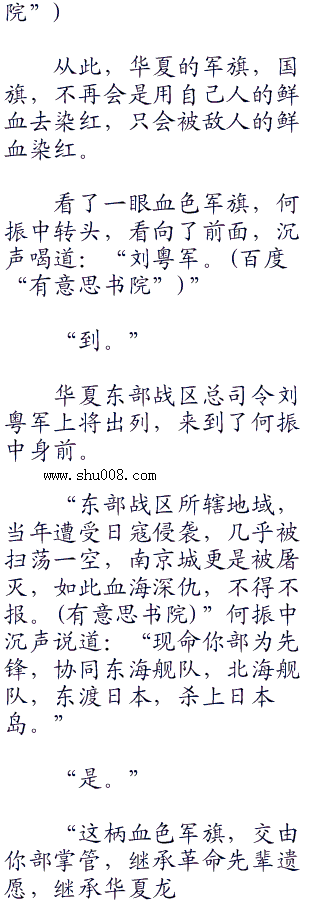 院”)
从此，华夏的军旗，国
旗，不再会是用自己人的鲜
血去染红，只会被敌人的鲜
血染红。
看了一眼血色军旗，何
振中转头，看向了前面，沉
声喝道：“刘粤军。(百度
“有意思书院”)”
“到。”
华夏东部战区总司令刘
粤军上将出列，来到了何振
中身前。
www.shu008.com
“东部战区所辖地域，
当年遭受日寇侵袭，几乎被
扫荡一空，南京城更是被屠
灭，如此血海深仇，不得不
报。(有意思书院)”何振中
沉声说道：“现命你部为先
锋，协同东海舰队，北海舰
队，东渡日本，杀上日本
岛。”
“是。”
“这柄血色军旗，交由
你部掌管，继承革命先辈遗
愿，继承华夏龙